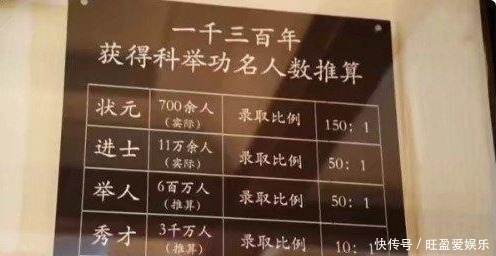 一千三百年
获得科举功名人数推算
状元 700余人 录取比例 150:1
(实际)
进士 11万余人 录取比例 50:1
(实际)
举人 6百万人 录取比例 50:1
(推算)
秀才 3千万人 录取比例 10:1
(推算)
快传号 / 旺盈爱娱乐